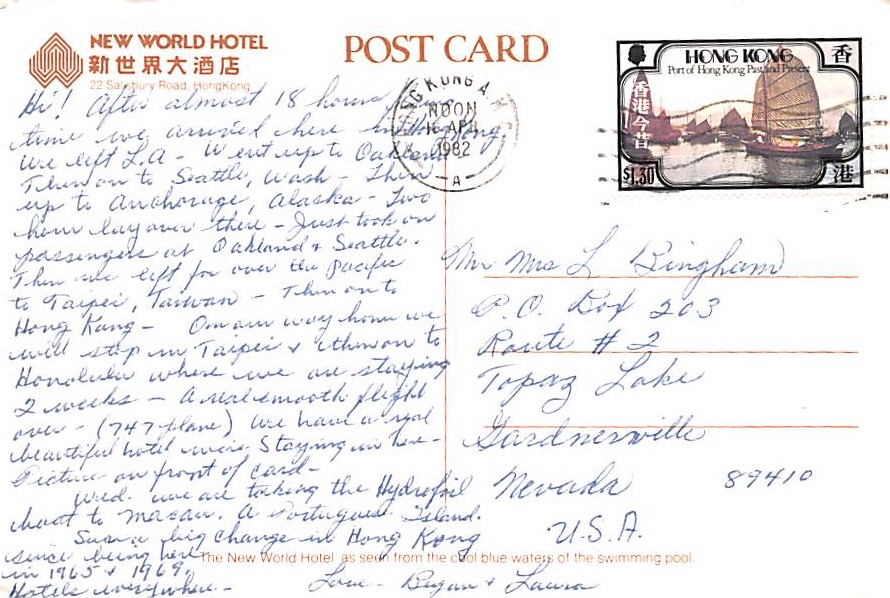 NEW WORLD HOTEL
新世界大酒店
22 Salisbury Road, HongKong
POST CARD
HONG KONG
NOON
16 AP
1982
A
HONG KONG
Port of Hong Kong Past and Present
香
港
香港今昔
$1.30
Hi! After almost 18 hours
time we arrived here in Hong Kong,
We left L.A - Went up to Oakland
Then on to Seattle, Wash - Then
up to Anchorage, Alaska - Two
hour lay over there - Just took on
passengers at Oakland & Seattle.
Then we left for over the Pacific
to Taipei, Taiwan - Then on to
Hong Kong - On our way home we
will stop in Taipei & then on to
Honolulu where we are staying
2 weeks - A real smooth flight
over - (747 plane) We have a real
beautiful hotel we're Staying in here -
Picture on front of card -
Wed. we are taking the Hydrofoil
boat to Macau. A Portugues Island.
Sure a big change in Hong Kong
since being here
in 1965 & 1969.
Hotels everywhere -
Love - & Laura
Mr Mrs L Bingham
P.O. Box 203
Route # 2
Topaz Lake
Gardnerville
Nevada 89410
U.S.A.
The New World Hotel as seen from the cool blue waters of the swimming pool.